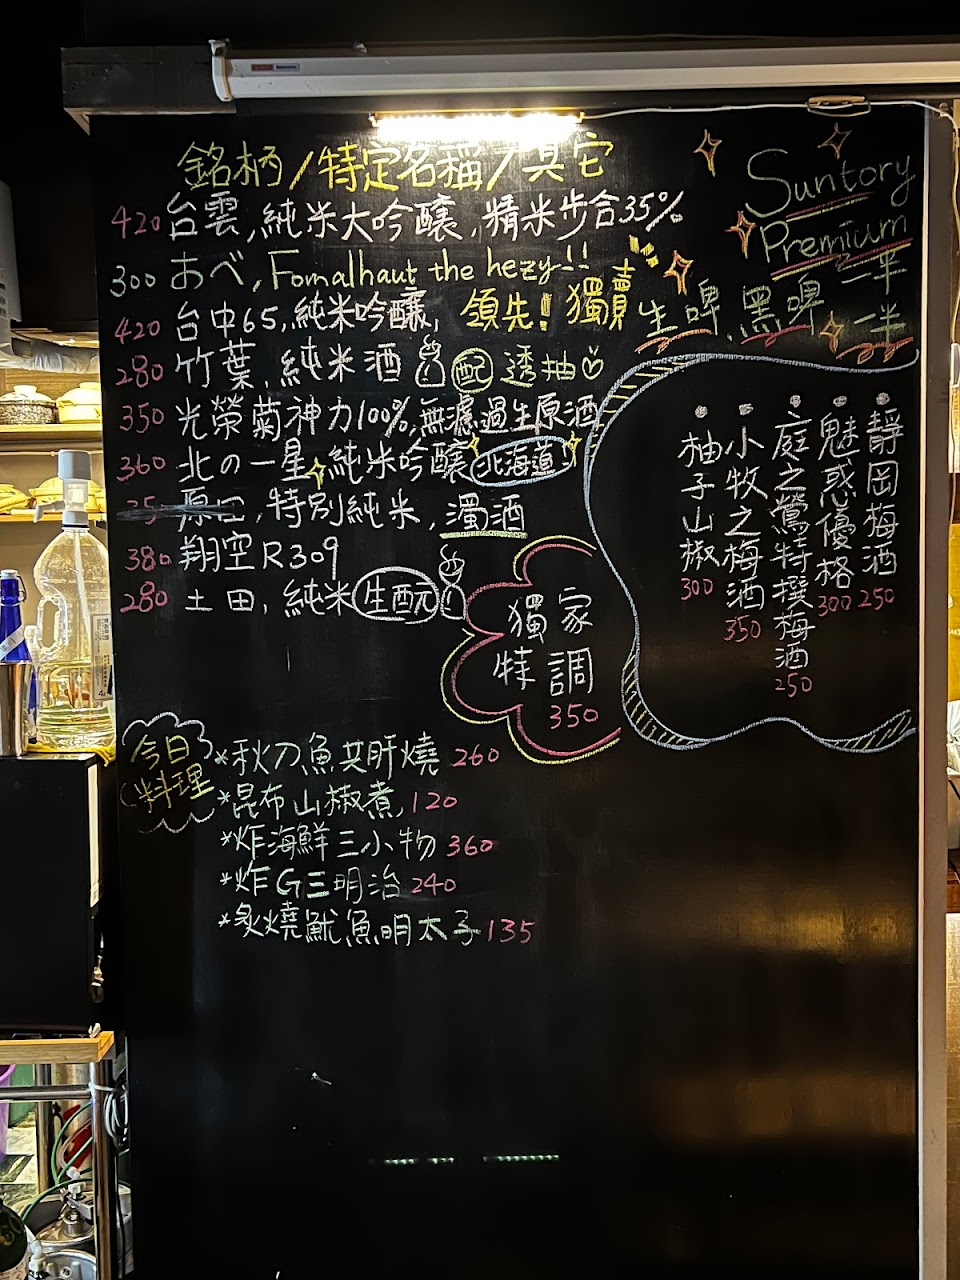 銘柄/特定名稱/其它
420 台雲,純米大吟釀,精米步合35%
300 あべ,Fomalhaut the hezy!!
領先!獨賣
420 台中65,純米吟釀,
280 竹葉,純米酒 配 透抽
350 光榮菊神力100%,無濾過生原酒
360 北の一星 純米吟釀 北海道
25 原田,特別純米,濁酒
380 翔空R309
280 土田,純米 生酛
Suntory
Premium
生啤.黑啤 一半一半
靜岡梅酒 250
魅惑優格 300
庭之鶯特撰梅酒 250
小牧之梅酒 350
柚子山椒 300
獨家
特調
350
今日
料理
*秋刀魚共肝燒 260
*昆布山椒煮, 120
*炸海鮮三小物 360
*炸G三明治 240
*炙燒魷魚明太子 135